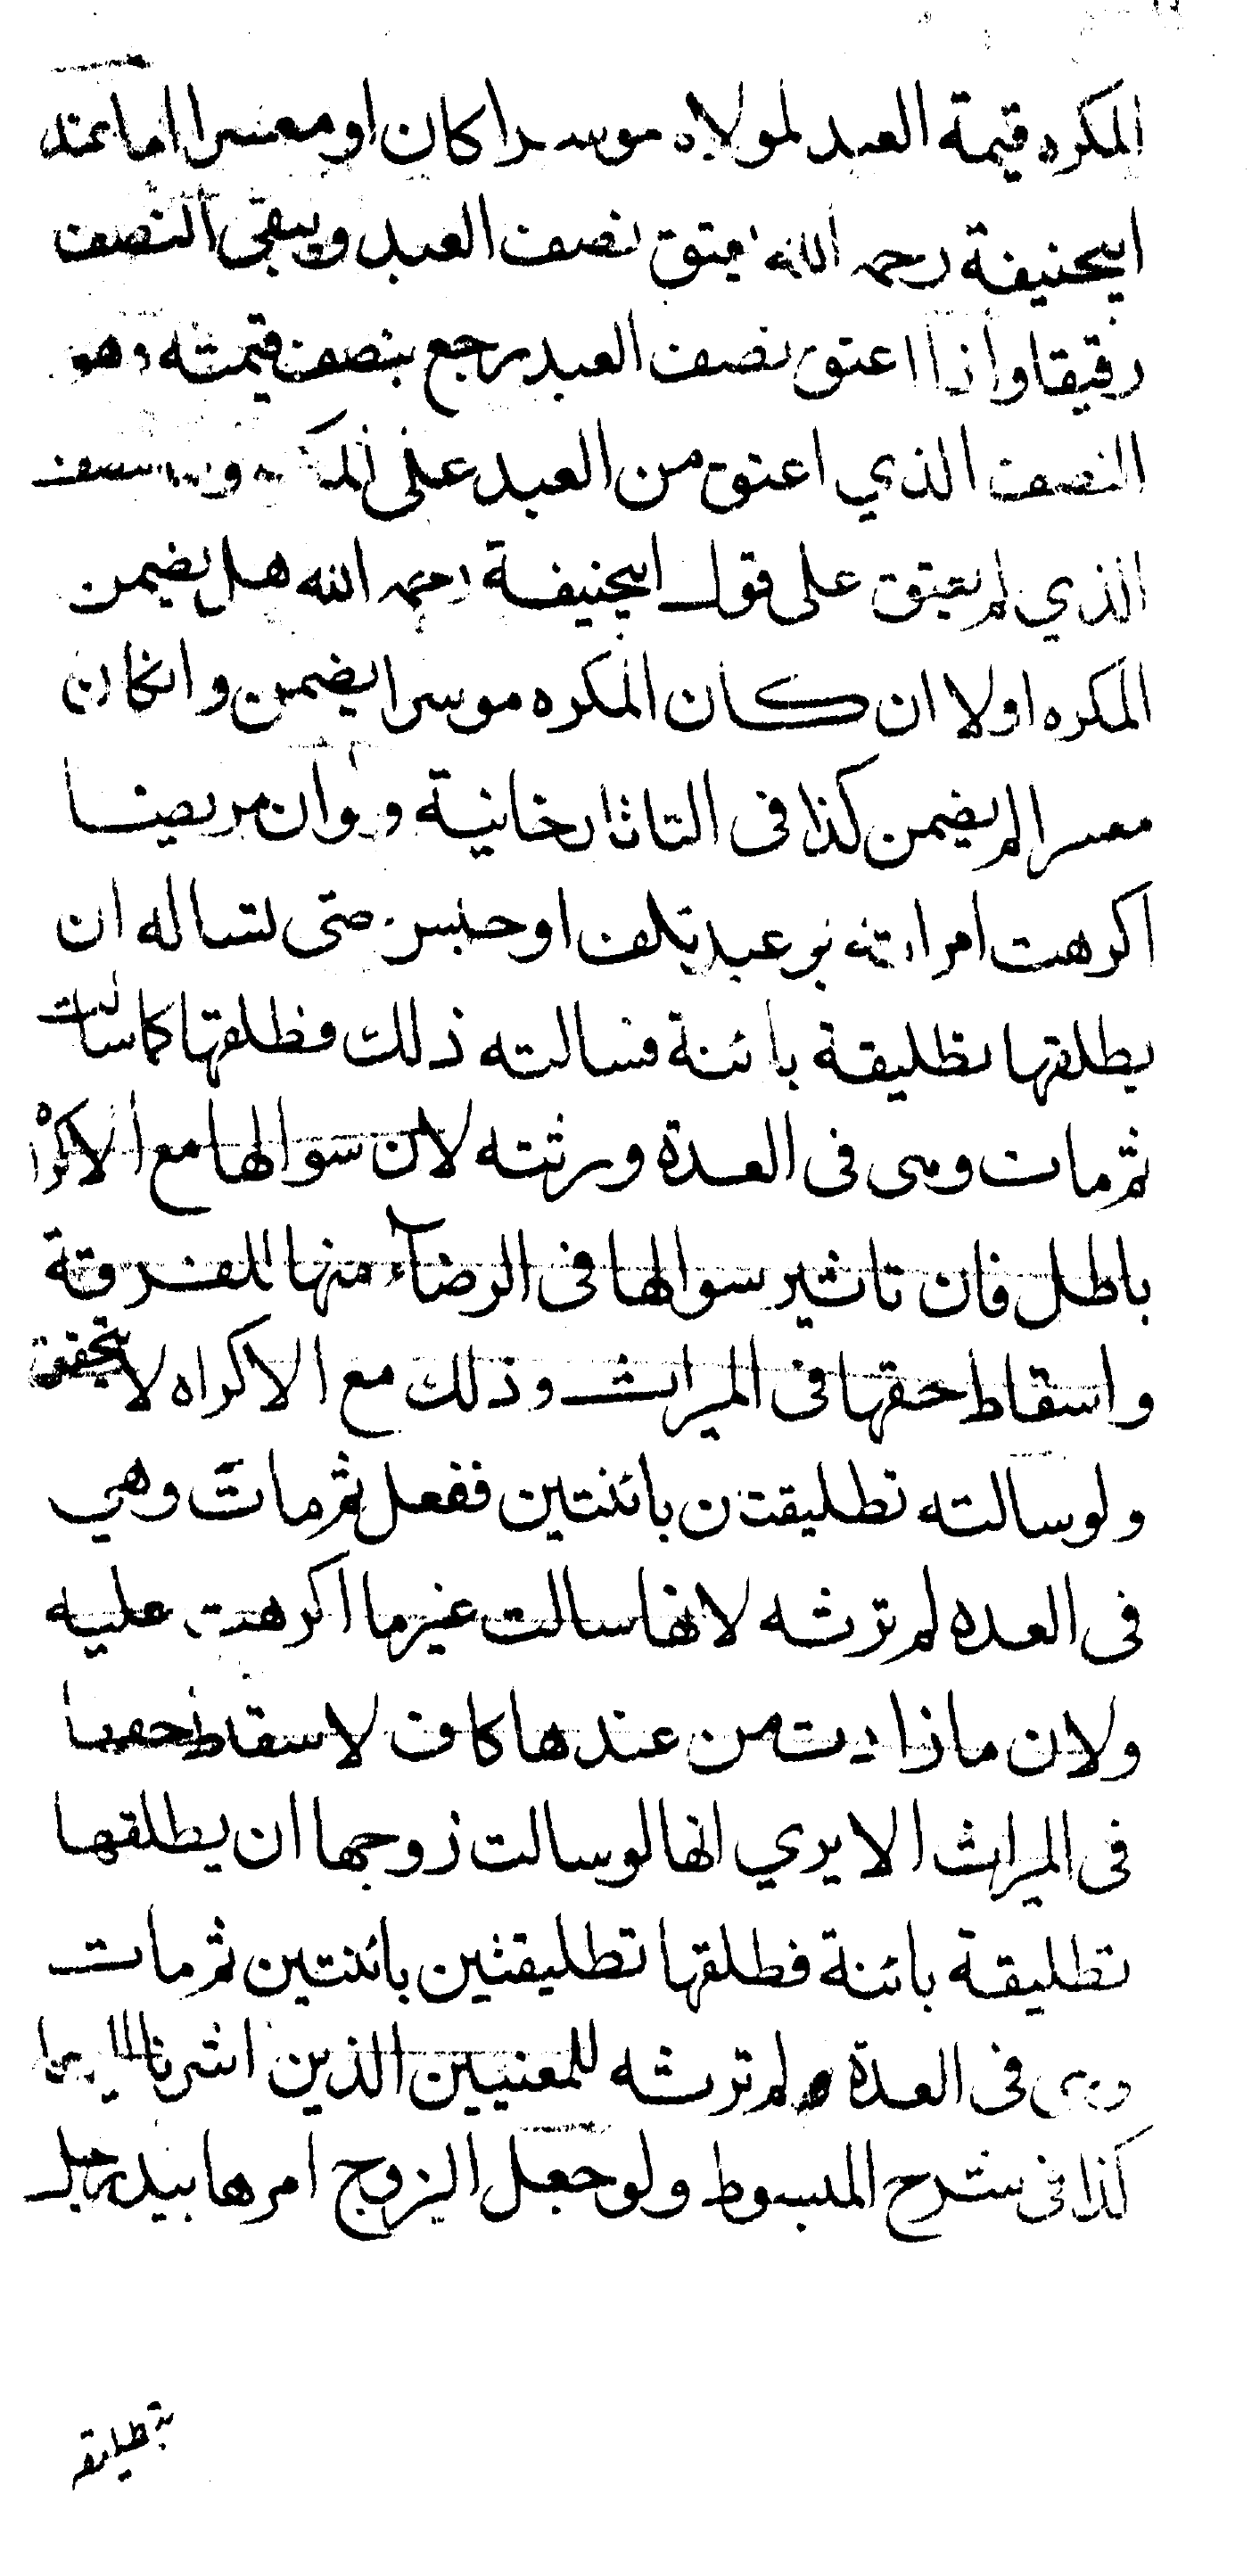 المكره قيمة العبد لمولاه موسرا كان او معسرا اما عند
ابيحنيفة رحمه الله يعتق نصف العبد ويبقى النصف
رقيقا واذا اعتق نصف العبد يرجع بنصف قيمته وهو
النصف الذي اعتق من العبد على
الذي لم يعتق على قول ابيحنيفة رحمه الله هل يضمن
المكره اولا ان كان المكره موسرا يضمن وانكان
معسرا لم يضمن كذا فى التاتارخانية ولوان مريضا
اكرهت امراته بوعيد تلف او حبس حتى تساله ان
يطلقها تطليقة بائنة فسالته ذلك فطلقها كما سالت
ثم مات وهى فى العدة ورثته لان سوالها مع الاكراه
باطل فان تاثير سوالها فى الرضآء منها للفرقة
واسقاط حقها فى الميراث وذلك مع الاكراه لا يتحقق
ولو سالته تطليقتين بائنتين ففعل ثم مات وهي
فى العده لم ترثه لانها سالت غير ما اكرهت عليه
ولان ما زادت من عندها كاف لاسقاط حقها
فى الميراث الا يري انها لو سالت زوجها ان يطلقها
تطليقة بائنة فطلقها تطليقتين بائنتين ثم مات
وهى فى العدة لم ترثه للمعنيين الذين اشرنا اليهما
كذا فى شرح المبسوط ولو جعل الزوج امرها بيد رجل
بتطليقة